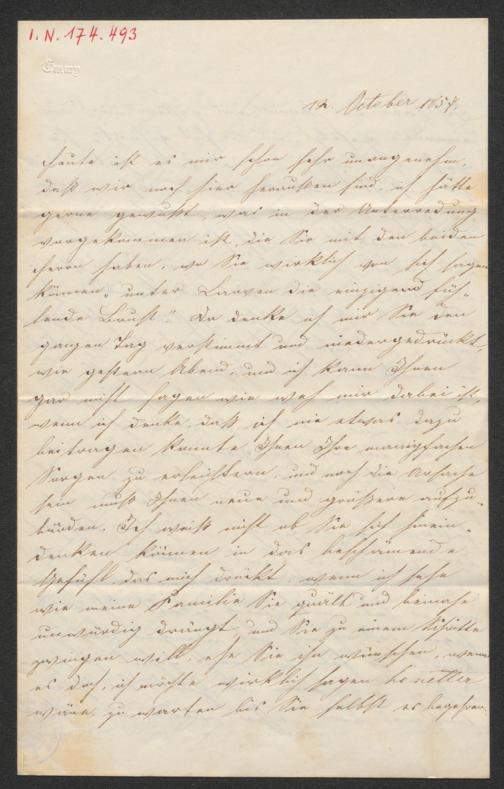 I. N. 174.493
Emmy
12. October 1857.
Heute ist es mir schon sehr unangenehm,
daß wir noch hier heraußen sind, ich hätte
gerne gewußt, was in der Unterredung
vorgekommen ist, die Sie mit den beiden
Herrn haben, wo Sie wirklich von sich sagen
können „unter Larven die einzigend füh-
lende Brust“. Da denke ich mir Sie den
ganzen Tag verstimmt und niedergedrückt,
wie gestern Abend, und ich kann Ihnen
gar nicht sagen wie weh mir dabei ist,
wenn ich denke, daß ich nie etwas dazu
beitragen konnte Ihnen Ihre manigfachen
Sorgen zu erleichtern, und noch die Ursache
sein muß Ihnen neue und größere aufzu-
bürden. Ich weiß nicht ob Sie sich hinein-
denken können in das beschämende
Gefühl das mich drückt, wenn ich sehe
wie meine Familie Sie quält und beinahe
unwürdig drängt, und Sie zu einem Schritte
zwingen will, ehe Sie ihn wünschen, wenn
es doch, ich möchte wirklich sagen honetter
wäre, zu warten bis Sie selbst es begehren.